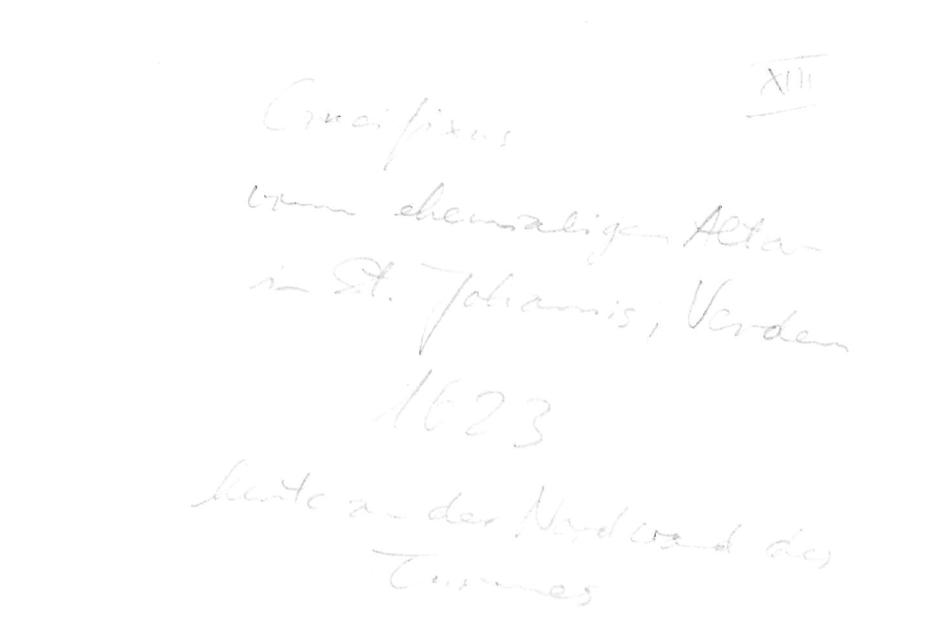 XIII
Crucifixus
vom ehemaligen Altar
in St. Johannis, Verden
1623
heute an der Nordwand des
Turmes